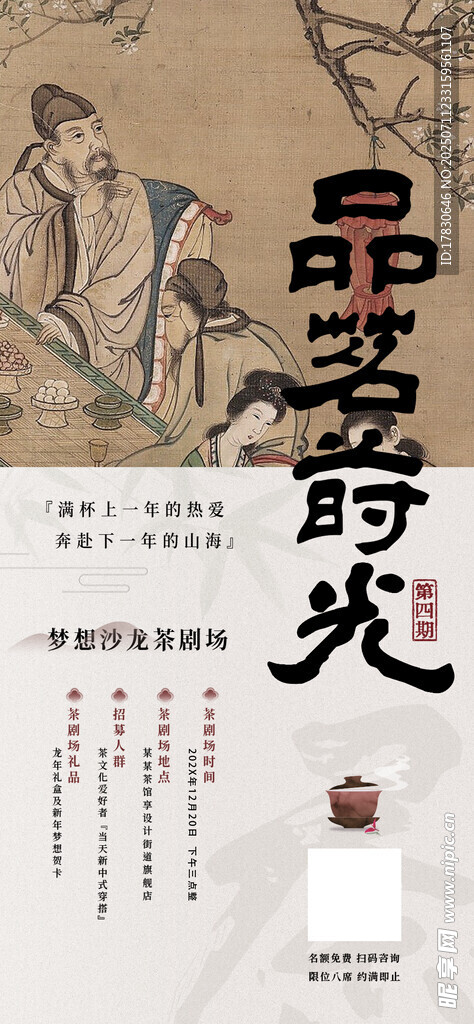 ID:17830646 NO:20250711233159561107
品茗时光
第四期
『满杯上一年的热爱
奔赴下一年的山海』
梦想沙龙茶剧场
茶剧场时间
202X年12月20日 下午三点整
茶剧场地点
某某茶馆享设计街道旗舰店
招募人群
茶文化爱好者『当天新中式穿搭』
茶剧场礼品
龙年礼盒及新年梦想贺卡
茶
名额免费 扫码咨询
限位八席 约满即止
昵享网 www.nipic.cn